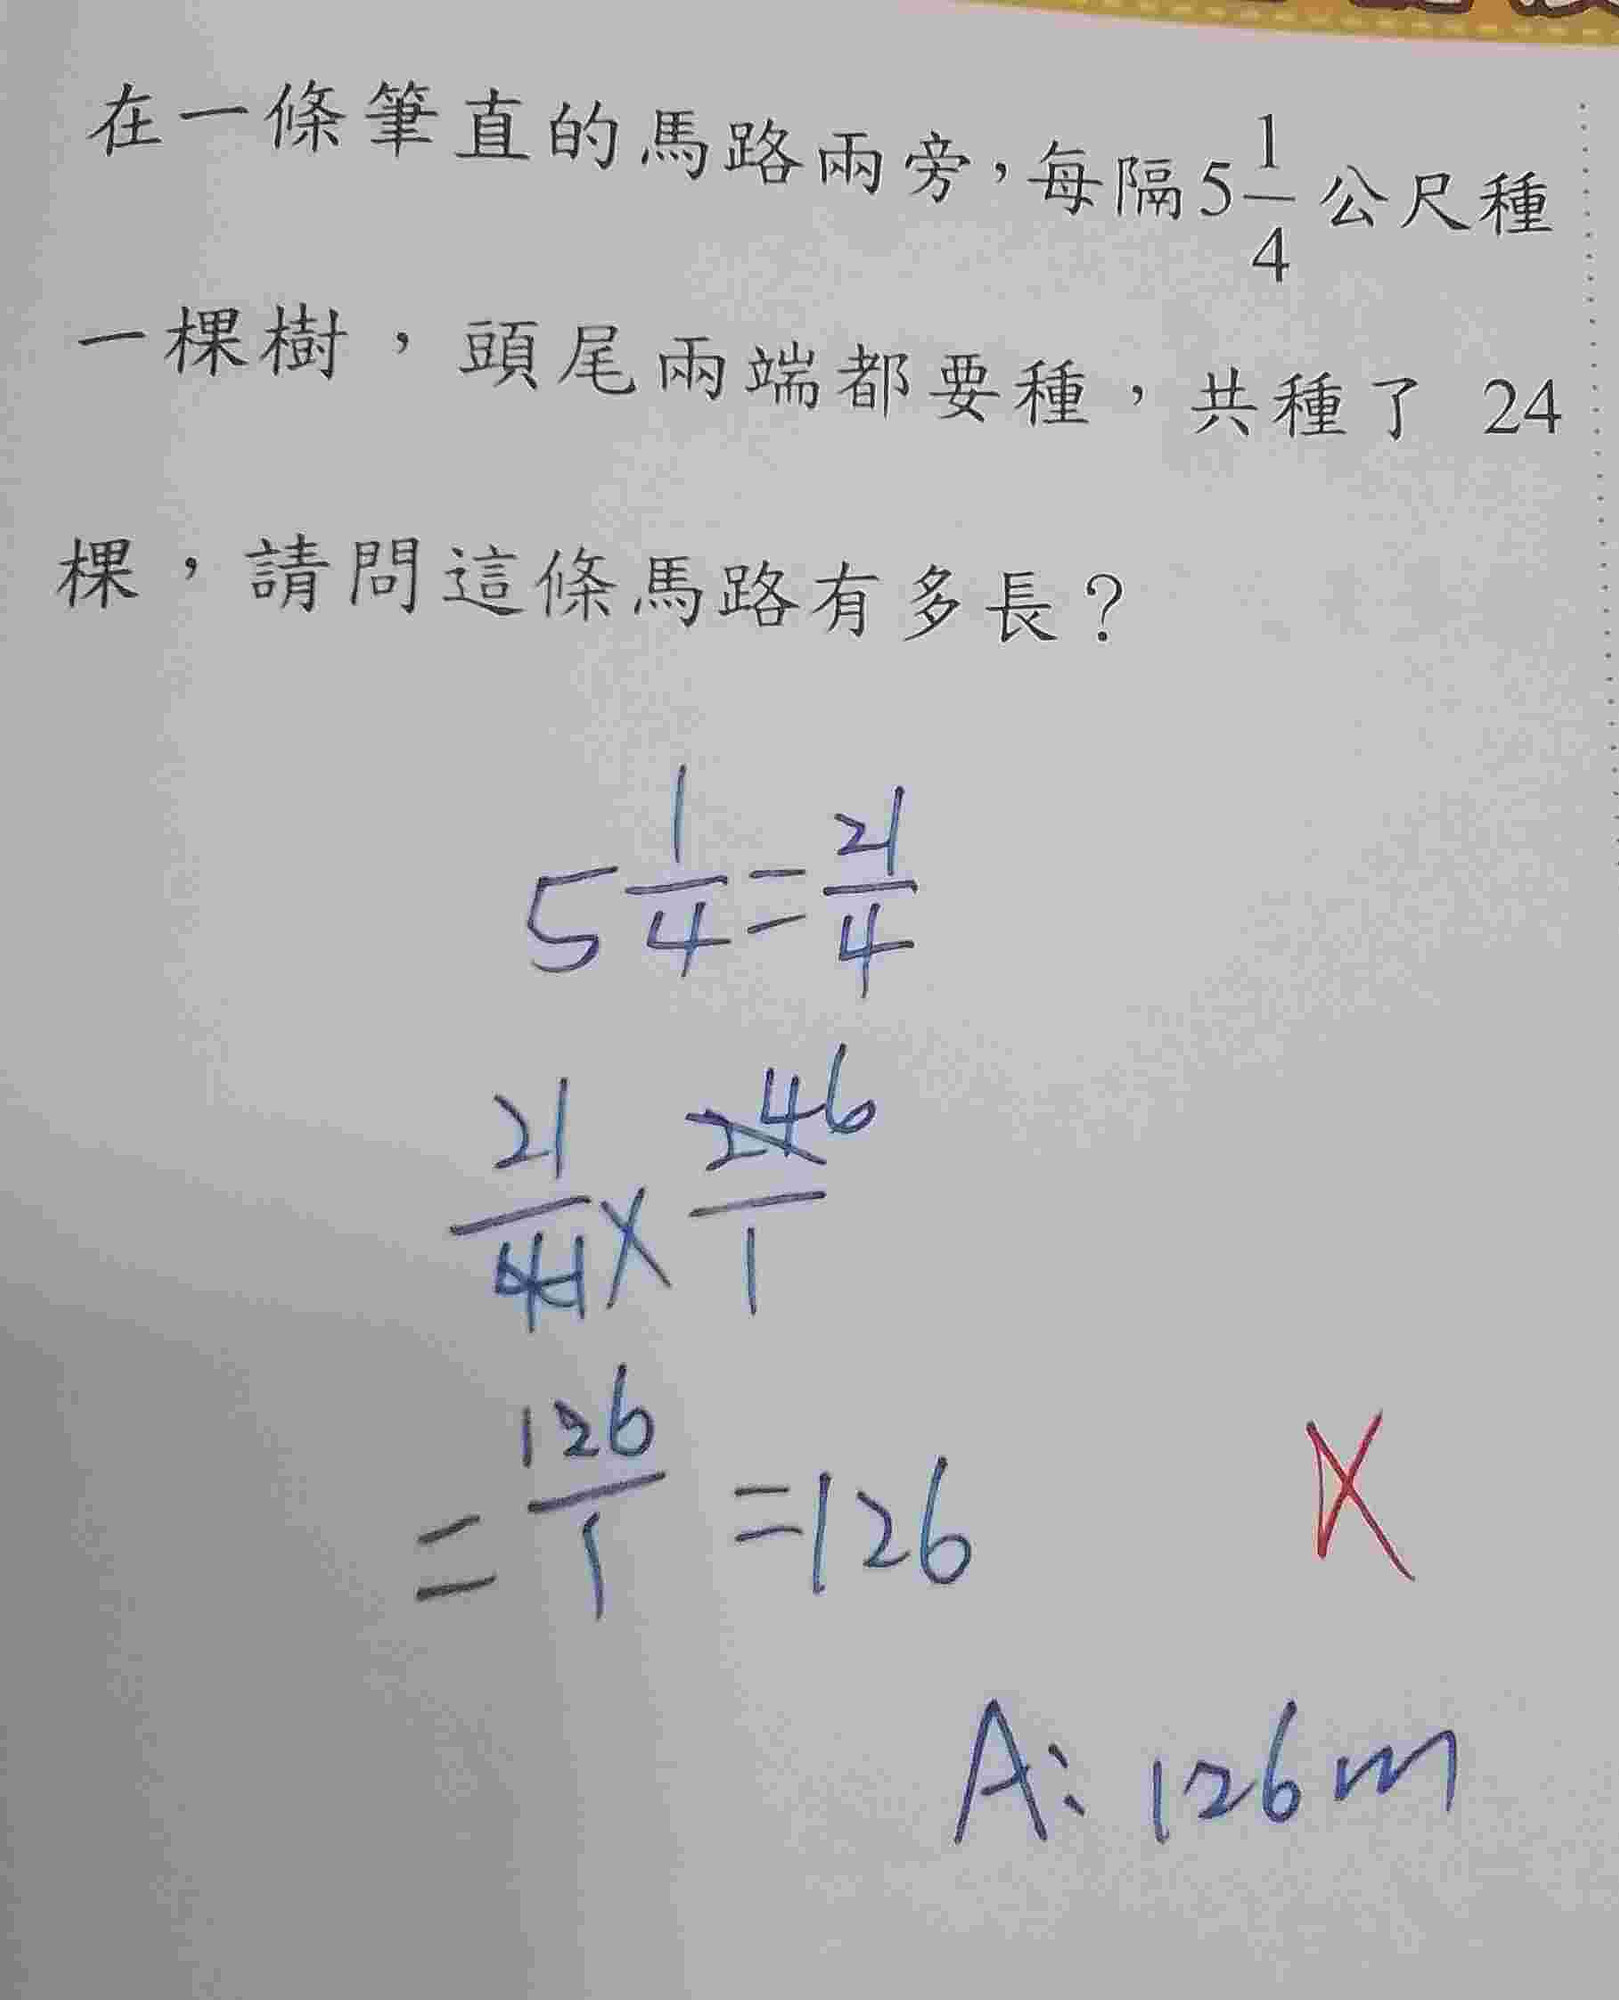 在一條筆直的馬路兩旁，每隔5 1/4 公尺種
一棵樹，頭尾兩端都要種，共種了 24
棵，請問這條馬路有多長？
5 1/4 = 21/4
21/4 1 × 24 6/1
= 126/1 = 126
A: 126m